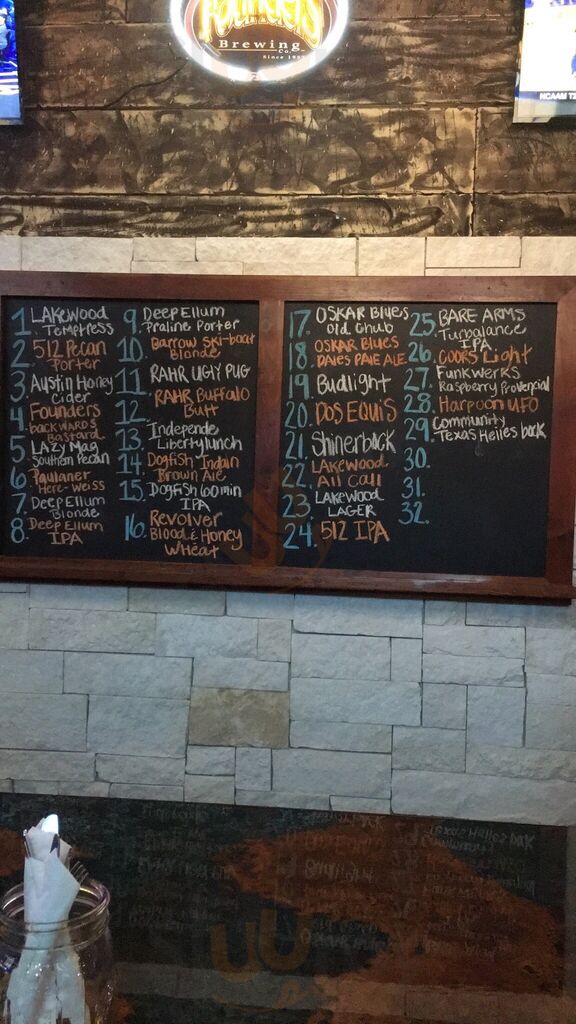 Founders
Brewing
Co.
Since
NCAAM
1 Lakewood
Temptress
2. 512 Pecan
Porter
3. Austin Honey
Cider
4. Founders
backwards
Bastard
5. Lazy Mag
Southern Pecan
6. Paulaner
Here-Weiss
7. Deep Ellum
Blonde
8. Deep Ellum
IPA
9. Deep Ellum
Praline Porter
10. Barrow Ski-boat
Blonde
11. RAHR UGLY PUG
12. RAHR Buffalo
Butt
13. Independe
Libertylunch
14. Dogfish Indain
Brown Ale
15. Dogfish 60 min
IPA
16. Revolver
Blood & Honey
Wheat
17. OSKAR Blues
Old Chub
18. OSKAR Blues
Dales Pale ALE
19. Budlight
20. DOS EQUIS
21. Shinerback
22. Lakewood
All Call
23. Lakewood
LAGER
24. 512 IPA
25. BARE ARMS
Turbalance
IPA
26. COORS Light
27. Funkwerks
Raspberry Provencial
28. Harpoon UFO
29. Community
Texas Helles bock
30.
31.
32.